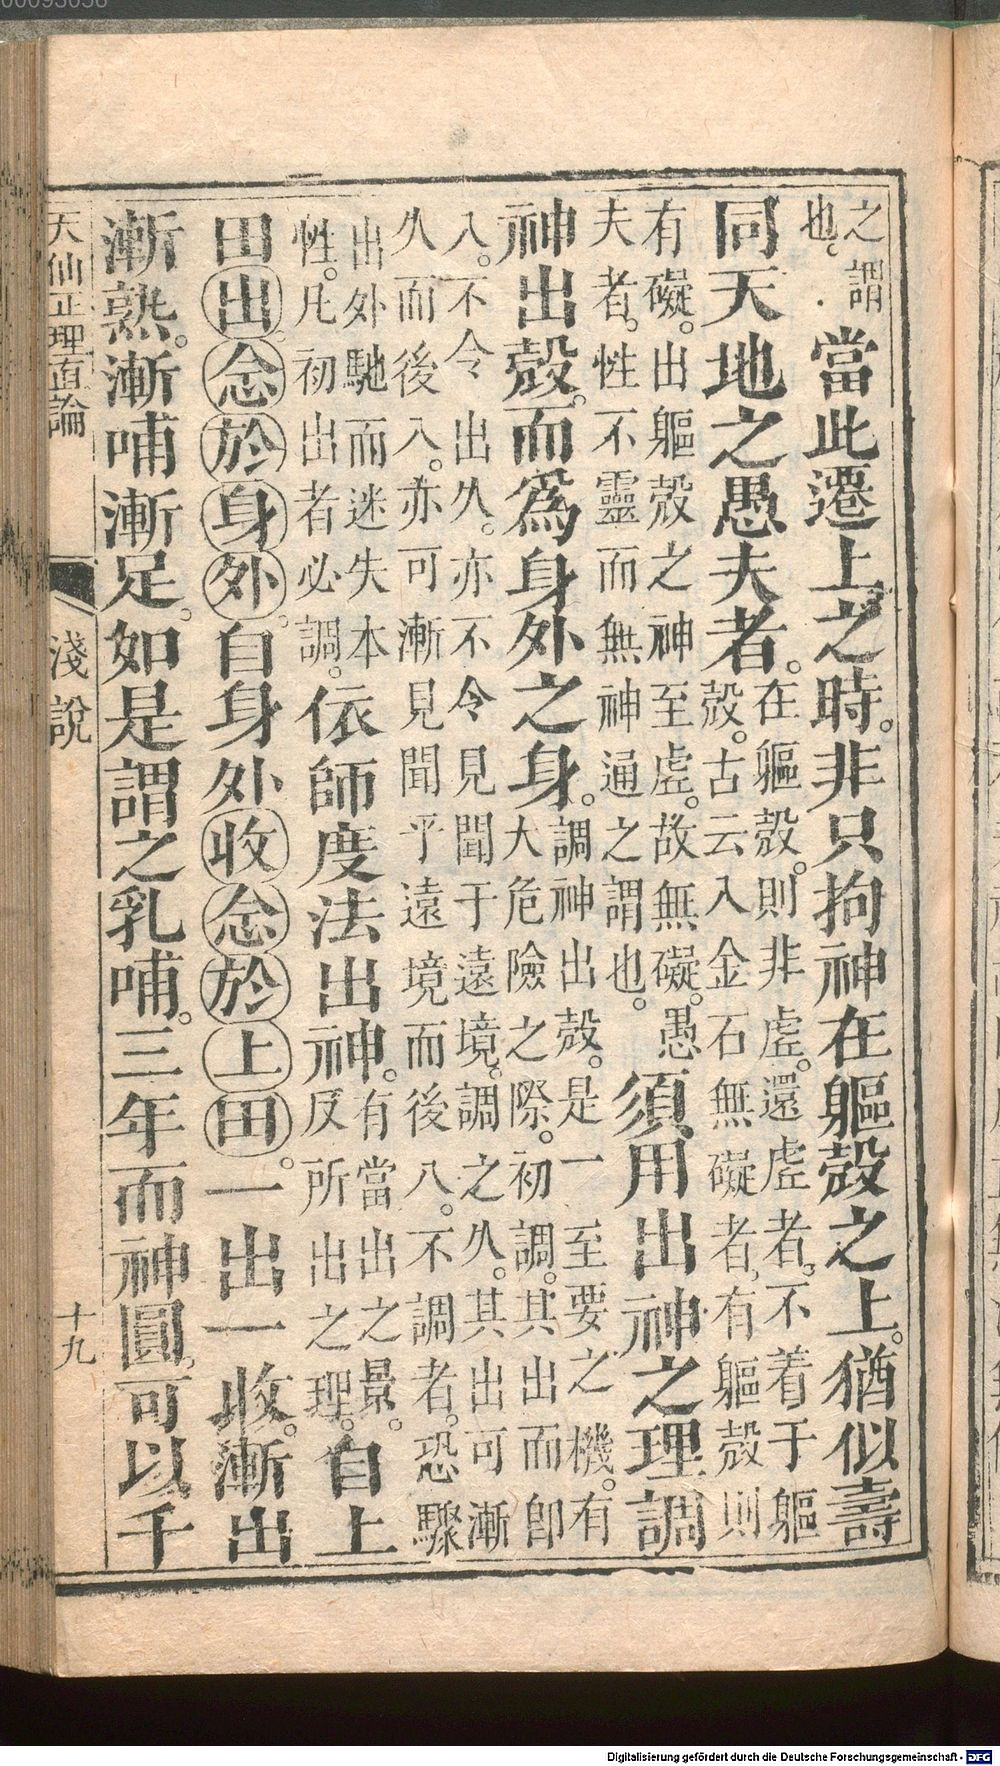 之謂
也。
當此遷上之時。非只拘神在軀殼之上。猶似壽
同天地之愚夫者。
在軀殼。則非虛。還虛者。不着于軀
殼。古云入金石無礙者，有軀殼則
有礙。出軀殼之神至虛。故無礙。愚
夫者。性不靈而無神通之謂也。
須用出神之理調
神出殼。而為身外之身。
調神出殼。是一至要之機。有
大危險之際。初調。其出而卽
入。不令出久。亦不令見聞于遠境。調之久。其出可漸
久而後入。亦可漸見聞乎遠境而後入。不調者。恐驟
出外馳而迷失本
性。凡初出者必調。
依師度法出神。
有當出之景。
反所出之理。
自上
田出念於身外。自身外收念於上田。一出一收。漸出
漸熟。漸哺漸足。如是謂之乳哺。三年而神圓，可以千
天仙正理直論
淺說
十九
00093056
Digitalisierung gefördert durch die Deutsche Forschungsgemeinschaft - DFG